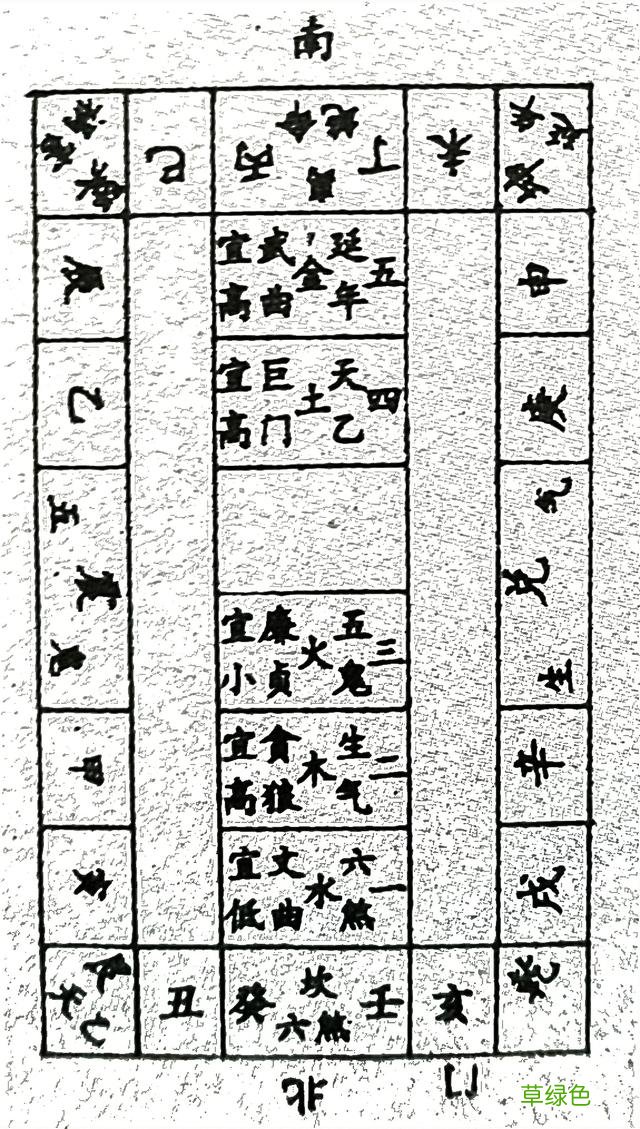 南
祸害
巽
巳
丙
绝命
离
丁
未
延年
坤
辰
五延年金武曲宜高
申
乙
四天乙土巨门宜高
庚
五鬼
震
生气
兑
三五鬼火廉贞宜小
甲
二生气木贪狼宜高
辛
寅
一六煞水文曲宜低
戌
艮
天乙
丑
癸
坎
六煞
壬
亥
乾
北
门
草绿色